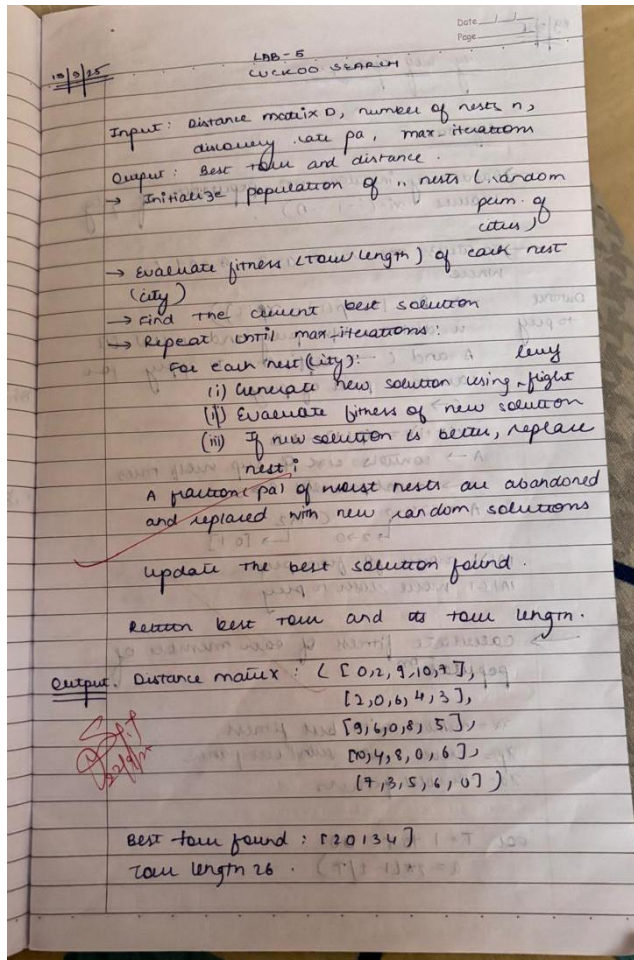 Date / /
Page
LAB - 5
CUCKOO SEARCH
Input: Distance matrix D, number of nests n,
discovery rate pa, max-iterations
Output: Best tour and distance.
→ Initialize population of n nests (random
perm. of
cities)
→ Evaluate fitness (tour length) of each nest
(city)
→ Find the current best solution
→ Repeat until max-iterations:
For each nest (city):
(i) Generate new solution using levy flight
(ii) Evaluate fitness of new solution
(iii) If new solution is better, replace
nest i
A fraction (pa) of worst nests are abandoned
and replaced with new random solutions
Update the best solution found.
Return best tour and its tour length.
Output. Distance matrix: ([0,2,9,10,7],
[2,0,6,4,3],
[9,6,0,8,5],
[10,4,8,0,6],
[7,3,5,6,0])
Best tour found: [2 0 1 3 4]
Tour length 26.